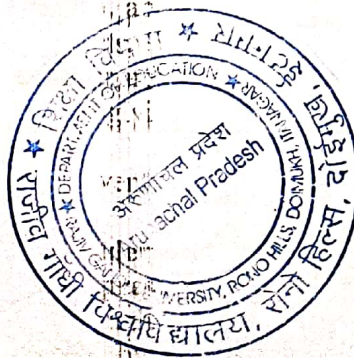 ★ शिक्षा विभाग ★
राजीव गाँधी विश्वविद्यालय, रोनो हिल्स, दोईमुख, ईटानगर
★ DEPARTMENT OF EDUCATION ★
RAJIV GANDHI UNIVERSITY, RONO HILLS, DOIMUKH, ITANAGAR
अरुणाचल प्रदेश
Arunachal Pradesh